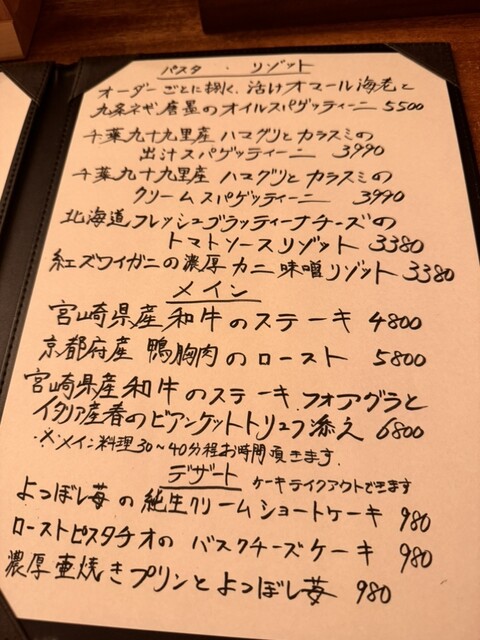 パスタ・リゾット
オーダーごとに捌く、活けオマール海老と
九条ネギ唐墨のオイルスパゲッティーニ 5500
千葉九十九里産 ハマグリとカラスミの
出汁スパゲッティーニ 3990
千葉九十九里産 ハマグリとカラスミの
クリームスパゲッティーニ 3990
北海道フレッシュブラッティーナチーズの
トマトソースリゾット 3380
紅ズワイガニの濃厚カニ味噌リゾット 3380
メイン
宮崎県産和牛のステーキ 4800
京都府産 鴨胸肉のロースト 5800
宮崎県産和牛のステーキ フォアグラと
イタリア産春のビアンケットトリュフ添え 6800
※メイン料理30~40分程お時間頂きます.
デザート ケーキテイクアウトできます
よつぼし苺の純生クリームショートケーキ 980
ローストピスタチオの バスクチーズケーキ 980
濃厚壷焼きプリンとよつぼし苺 980